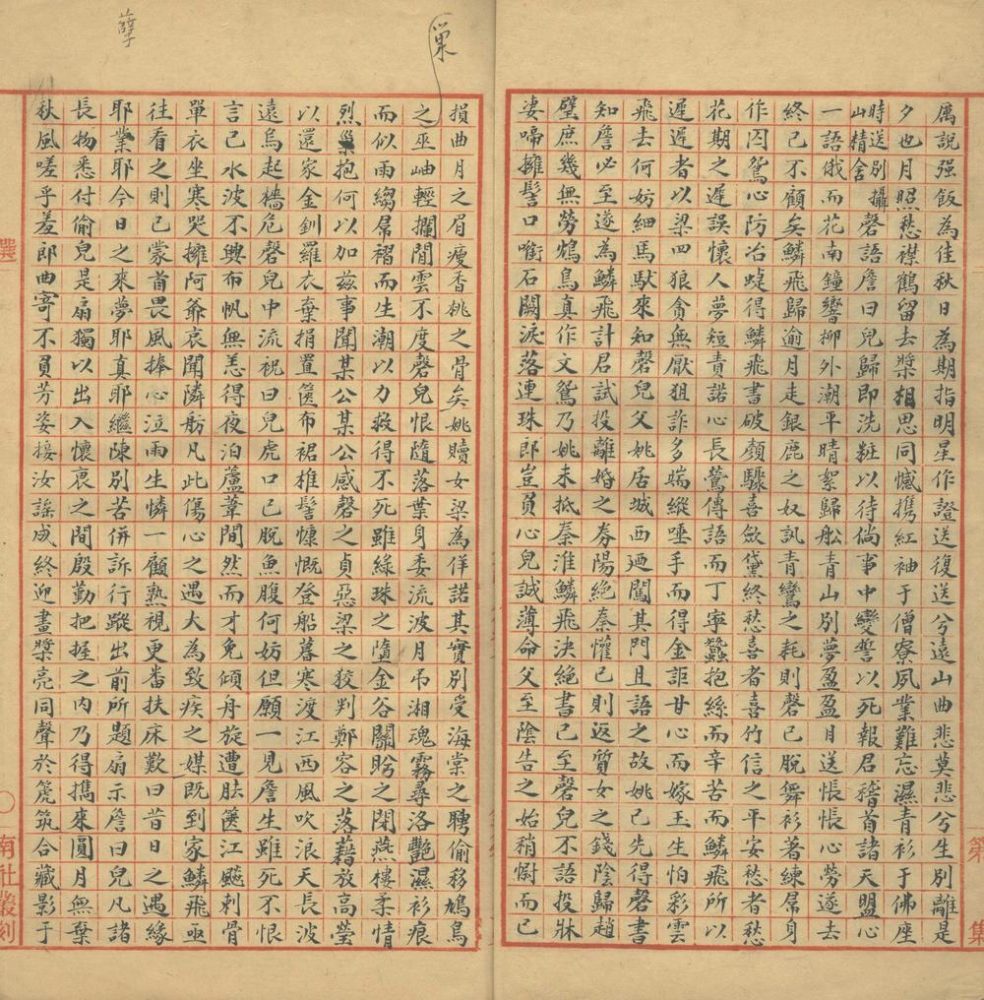 厲說强飯為佳秋日為期指明星作證送復送兮遠山曲悲莫悲兮生別離是
夕也月照愁襟鶴留去槳相思同憾携紅袖于僧寮夙業難忘濕青衫于佛座
時送別攝山精舍磬語詹曰兒歸即洗粧以待倘事中變誓以死報君稽首諸天盟心
一語俄而花南鐘響柳外潮平晴絮歸船青山別夢盈盈目送悵悵心勞遂去
終已不顧矣鱗飛歸逾月走銀鹿之奴訊青鸞之耗則磬已脫舞衫著練帬身
作囚鴛心防冶蜨得鱗飛書破顏驟喜歛黛終愁喜者喜竹信之平安愁者愁
花期之遲誤懷人夢短責諾心長鶯傳語而丁寧蠶抱絲而辛苦而鱗飛所以
遲遲者以梁四狼貪無厭狙詐多端縱唾手而得金詎甘心而嫁玉生怕彩雲
飛去何妨細馬馱來知磬兒父姚居城西廼闖其門且語之故姚已先得磬書
知詹必至遂為鱗飛計君試投離婚之券陽絕秦懽已則返質女之錢陰歸趙
璧庶幾無勞鴆鳥真作文鴛乃姚未抵秦淮鱗飛決絕書已至磬兒不語投牀
淒啼擁髻口啣石闕淚落連珠郎豈負心兒誠薄命父至陰告之始稍慰而已
第 集
巢
孽
損曲月之眉瘦香桃之骨矣姚贖女梁為佯諾其實別受海棠之聘偷移鳩鳥
之巫岫輕攔閒雲不度磬兒恨隨落葉身委流波月弔湘魂霧尋洛艷濕衫痕
而似雨縐帬褶而生潮以力救得不死雖綠珠之墮金谷關盼之閉燕樓柔情
烈抱何以加茲事聞某公某公感磬之貞惡梁之狡判鄭容之落藉放高瑩
以還家金釧羅衣棄捐置篋布裙椎髻慷慨登船暮寒渡江西風吹浪天長波
遠烏起檣危磬兒中流祝曰兒虎口已脫魚腹何妨但願一見詹生雖死不恨
言已水波不興布帆無恙得夜泊蘆葦間然而才免傾舟旋遭胠篋江颸刺骨
單衣坐寒哭擁阿爺哀聞隣舫凡此傷心之遇大為致疾之媒既到家鱗飛亟
往看之則已蒙首畏風捧心泣雨生憐一顧熟視更番扶床歎曰昔日之遇緣
耶業耶今日之來夢耶真耶繼陳別苦併訴行蹤出前所題扇示詹曰兒凡諸
長物悉付偷兒是扇獨以出入懷褱之間殷勤把握之內乃得擕來圓月無棄
秋風嗟乎羞郎曲寄不負芳姿接汝謠成終迎畫槳亮同聲於箎筑合藏影于
南社叢刻